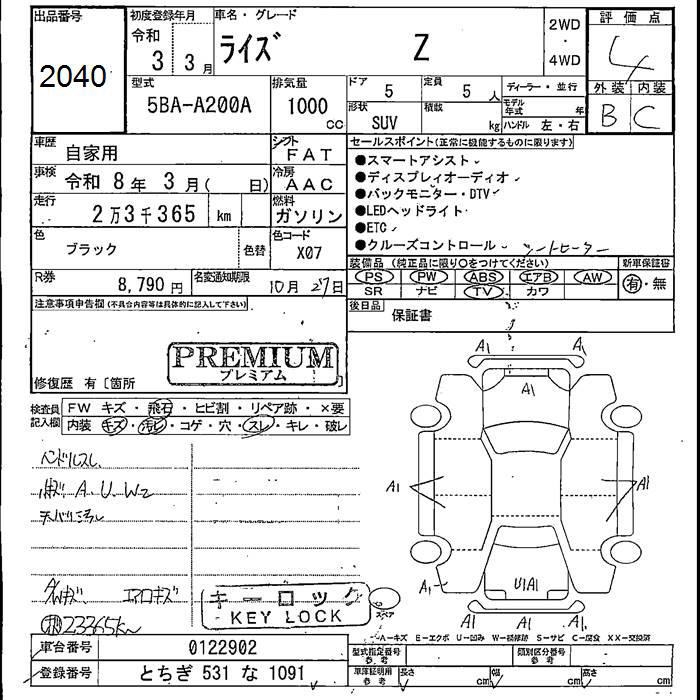 出品番号
2040
初度登録年月
令和 3 3月
車名・グレード
ライズ Z
2WD
・
4WD
評価点
4
外装 内装
B C
型式
5BA-A200A
排気量
1000 cc
ドア 5
定員 5 人
形状 SUV
積載 kg
ディーラー・並行
モデル年式 年
ハンドル 左・右
車歴 自家用
シフト FAT
車検 令和 8年 3月( 日)
冷房 AAC
走行 2万3千365 km
燃料 ガソリン
色 ブラック 色替
色コード X07
R券 8,790円
名変通知期限 10月27日
セールスポイント(正常に機能するものに限ります)
●スマートアシスト
●ディスプレイオーディオ
●バックモニター・DTV
●LEDヘッドライト
●ETC
●クルーズコントロール シートヒーター
装備品(純正品に限り○をつけてください)
新車保証書
PS PW ABS エアB AW
SR ナビ TV カワ
有・無
後日品 保証書
注意事項申告欄(不具合内容等は具体的に記入して下さい)
PREMIUM
プレミアム
修復歴 有〔箇所 〕
検査員記入欄
FW キズ・飛石・ヒビ割・リペア跡・×要
内装 キズ・汚レ・コゲ・穴・スレ・キレ・破レ
ハンドルスレ
A.U.W2
エアロキズ
23365km
キーロック
KEY LOCK
A1 A1
A1
A1 A1
A1
U1A1
A1 A1 A1
スペア
A−キズ E−エクボ U−凹み W−補修跡 S−サビ C−腐食 XX−交換済
車台番号 0122902
登録番号 とちぎ 531 な 1091
型式指定番号 参考
類別区分番号 参考
車庫証明用 参考
長さ cm 幅 cm 高さ cm